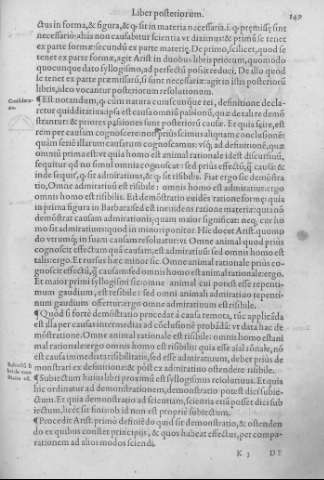 Liber posteriorum. 149
ctus in forma, & figura, & q sit in materia necessaria. i. q premisse sint
necessarie: alias non causabitur scientia vt diximus: & primum se tenet
ex parte forme secundum ex parte materie. De primo, scilicet, quod se
tenet ex parte forme, agit Arist in duobus libris priorum, quomodo
quocunque dato syllogismo, ad perfectum posset reduci. De alio quod
se tenet ex parte premissarum, si sint necessarie agit in istis posteriorum
libris, ideo vocantur posteriorum resolutionum.
¶ Est notandum, q cum natura cuiuscunque rei, definitione decla-
retur quidditatiue ipsa est causa omnis passionis, que de tali re demo
stratur: & priores passiones sunt posteriorum cause. Et quia scire, est
rem per causam cognoscere non prius scimus aliquam conclusionem
quam seriem illarum causarum cognoscamus: vsque ad definitionem, que
omnium prima est: vt quia homo est animal rationale idest discursiuum,
sequitur quod non simul omnia cognoscat: sed prius effectum, & causam: &
inde sequitur, q sit admiratiuus, & q sit risibilis. Fiat ergo sic demonstra
tio, Omne admiratiuum est risibile: omnis homo est admiratiuus: ergo
omnis homo est risibilis. Est demonstratio euidens ratione forme: quia
in prima figura in Barbara sed est ineuidens ratione materie: quia non
demonstrat causam admirationis, quam maior significat: neque, cur ho
mo sit admiratiuus quod in minori ponitur. Hic docet Arist. quomo
do vtrumque in suam causam resoluatur: vt. Omne animal quod prius
cognoscit effectum quam causam, est admiratiuum: sed omnis homo est
talis: ergo. Et rursus hec minor sic. Omne animal rationale prius co-
gnoscit effectum, quam causam sed omnis homo est animal rationale: ergo.
Et maior primi syllogismi sic: omne animal cui potest esse repenti-
num gaudium, est risibile: sed omni animali admiratiuo repenti-
num gaudium offertur: ergo omne admiratiuum est risibile.
¶ Quod si forte demonstratio procedat a causa remota, tunc applicanda
est illa per causas intermedias ad conclusionem probandam: vt data hac de
monstratione. Omne animal rationale est risibile: omnis homo est ani
mal rationale ergo omnis homo est risibilis: quia esse animal rationale, non
est causa immediata risibilitatis, sed esse admiratiuum, debet prius de
monstrari ex definitione: & post ex admiratiuo ostendere risibile.
¶ Subiectum huius libri proximum est syllogismus resolutiuus. Et quia
hic ordinatur ad demonstrationem, demonstratio potest dici subie-
ctum. Et quia demonstratio ad scientiam, scientia etiam posset dici sub
iectum, licet sic finis ob id non est proprie subiectum.
¶ Procedit Arist. primo definiendo quid sit demonstratio, & ostenden
do ex quibus constet principijs, & quos habeat effectus, per compa-
rationem ad alios modos sciendi.
K 3 DE